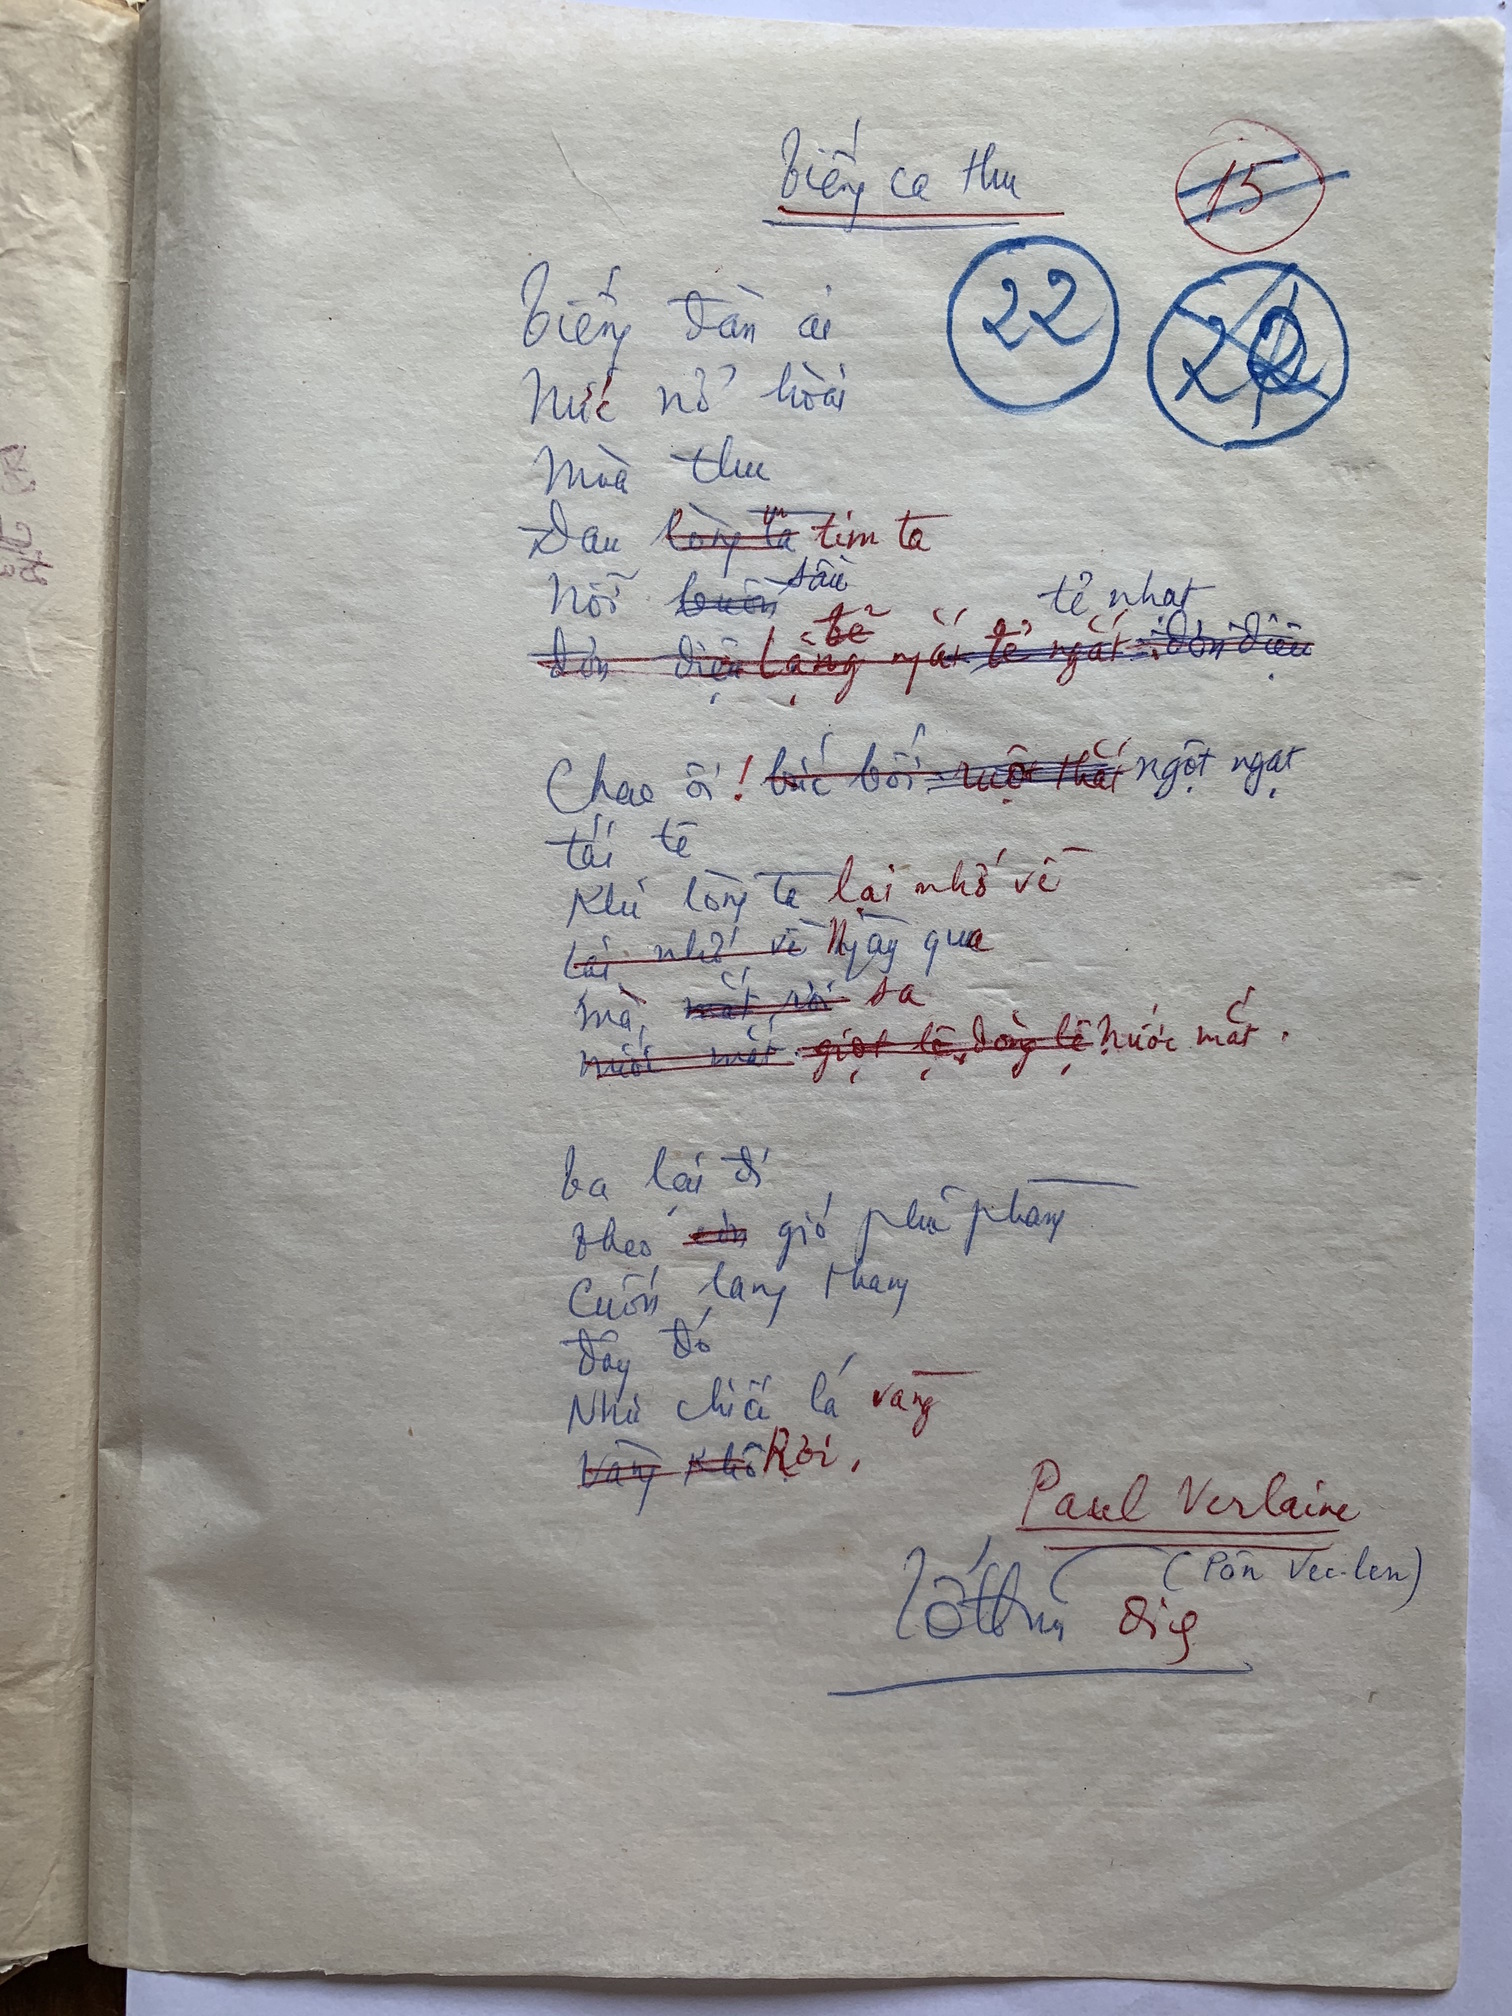 Tiếng ca thu
15
22
Tiếng đàn ai
Nức nở hoài
Mùa thu
Đau lòng ta tim ta
Nỗi buồn sầu
tẻ nhạt
đơn điệu Lặng ngắt tẻ ngắt đơn điệu
Chao ôi! bức bối ngột ngạt
tái tê
Khi lòng ta lại nhớ về
Lại nhớ về Ngày qua
Mà, sa
nước mắt giọt lệ, dòng lệ Nước mắt.
Ta lại đi
Theo cơn gió phũ phàng
Cuốn lang thang
đây đó
Như chiếc lá vàng
Vàng khô Rơi.
Paul Verlaine
(Pôn Véc-len)
dịch